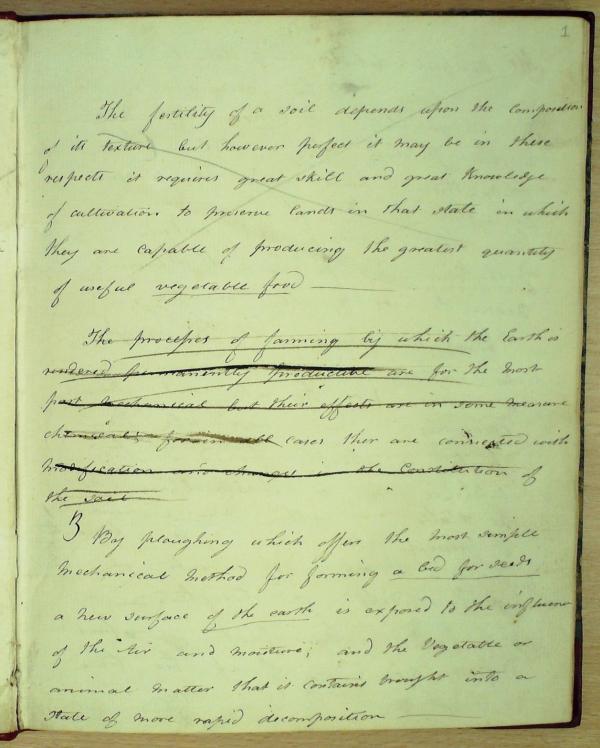 1
The fertility of a soil depends upon the composition
of its texture but however perfect it may be in these
respects it requires great skill and great Knowledge
of cultivation to preserve lands in that state in which
they are capable of producing the greatest quantity
of useful vegetable food —
The processes of farming by which the Earth is
rendered permanently productive are for the most
part mechanical but their effects are in some measure
chemical; for in all cases ther are connected with
modification and changes in the Constitution of
the soil
By ploughing which offers the most simple
mechanical method for forming a bed for seeds
a new surface of the earth is exposed to the influence
of the Air and moisture; and the Vegetable or
animal matter that it contains brought into a
state of more rapid decomposition —